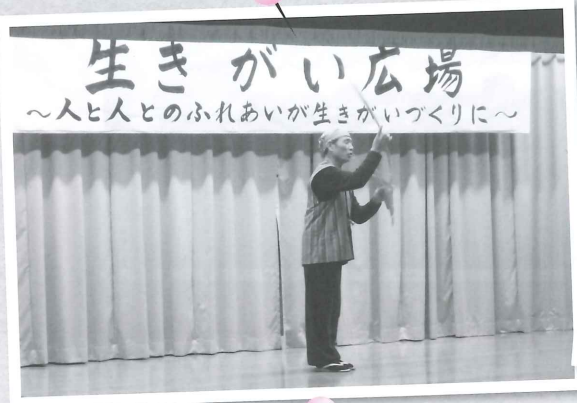 生きがい広場
～人と人とのふれあいが生きがいづくりに～